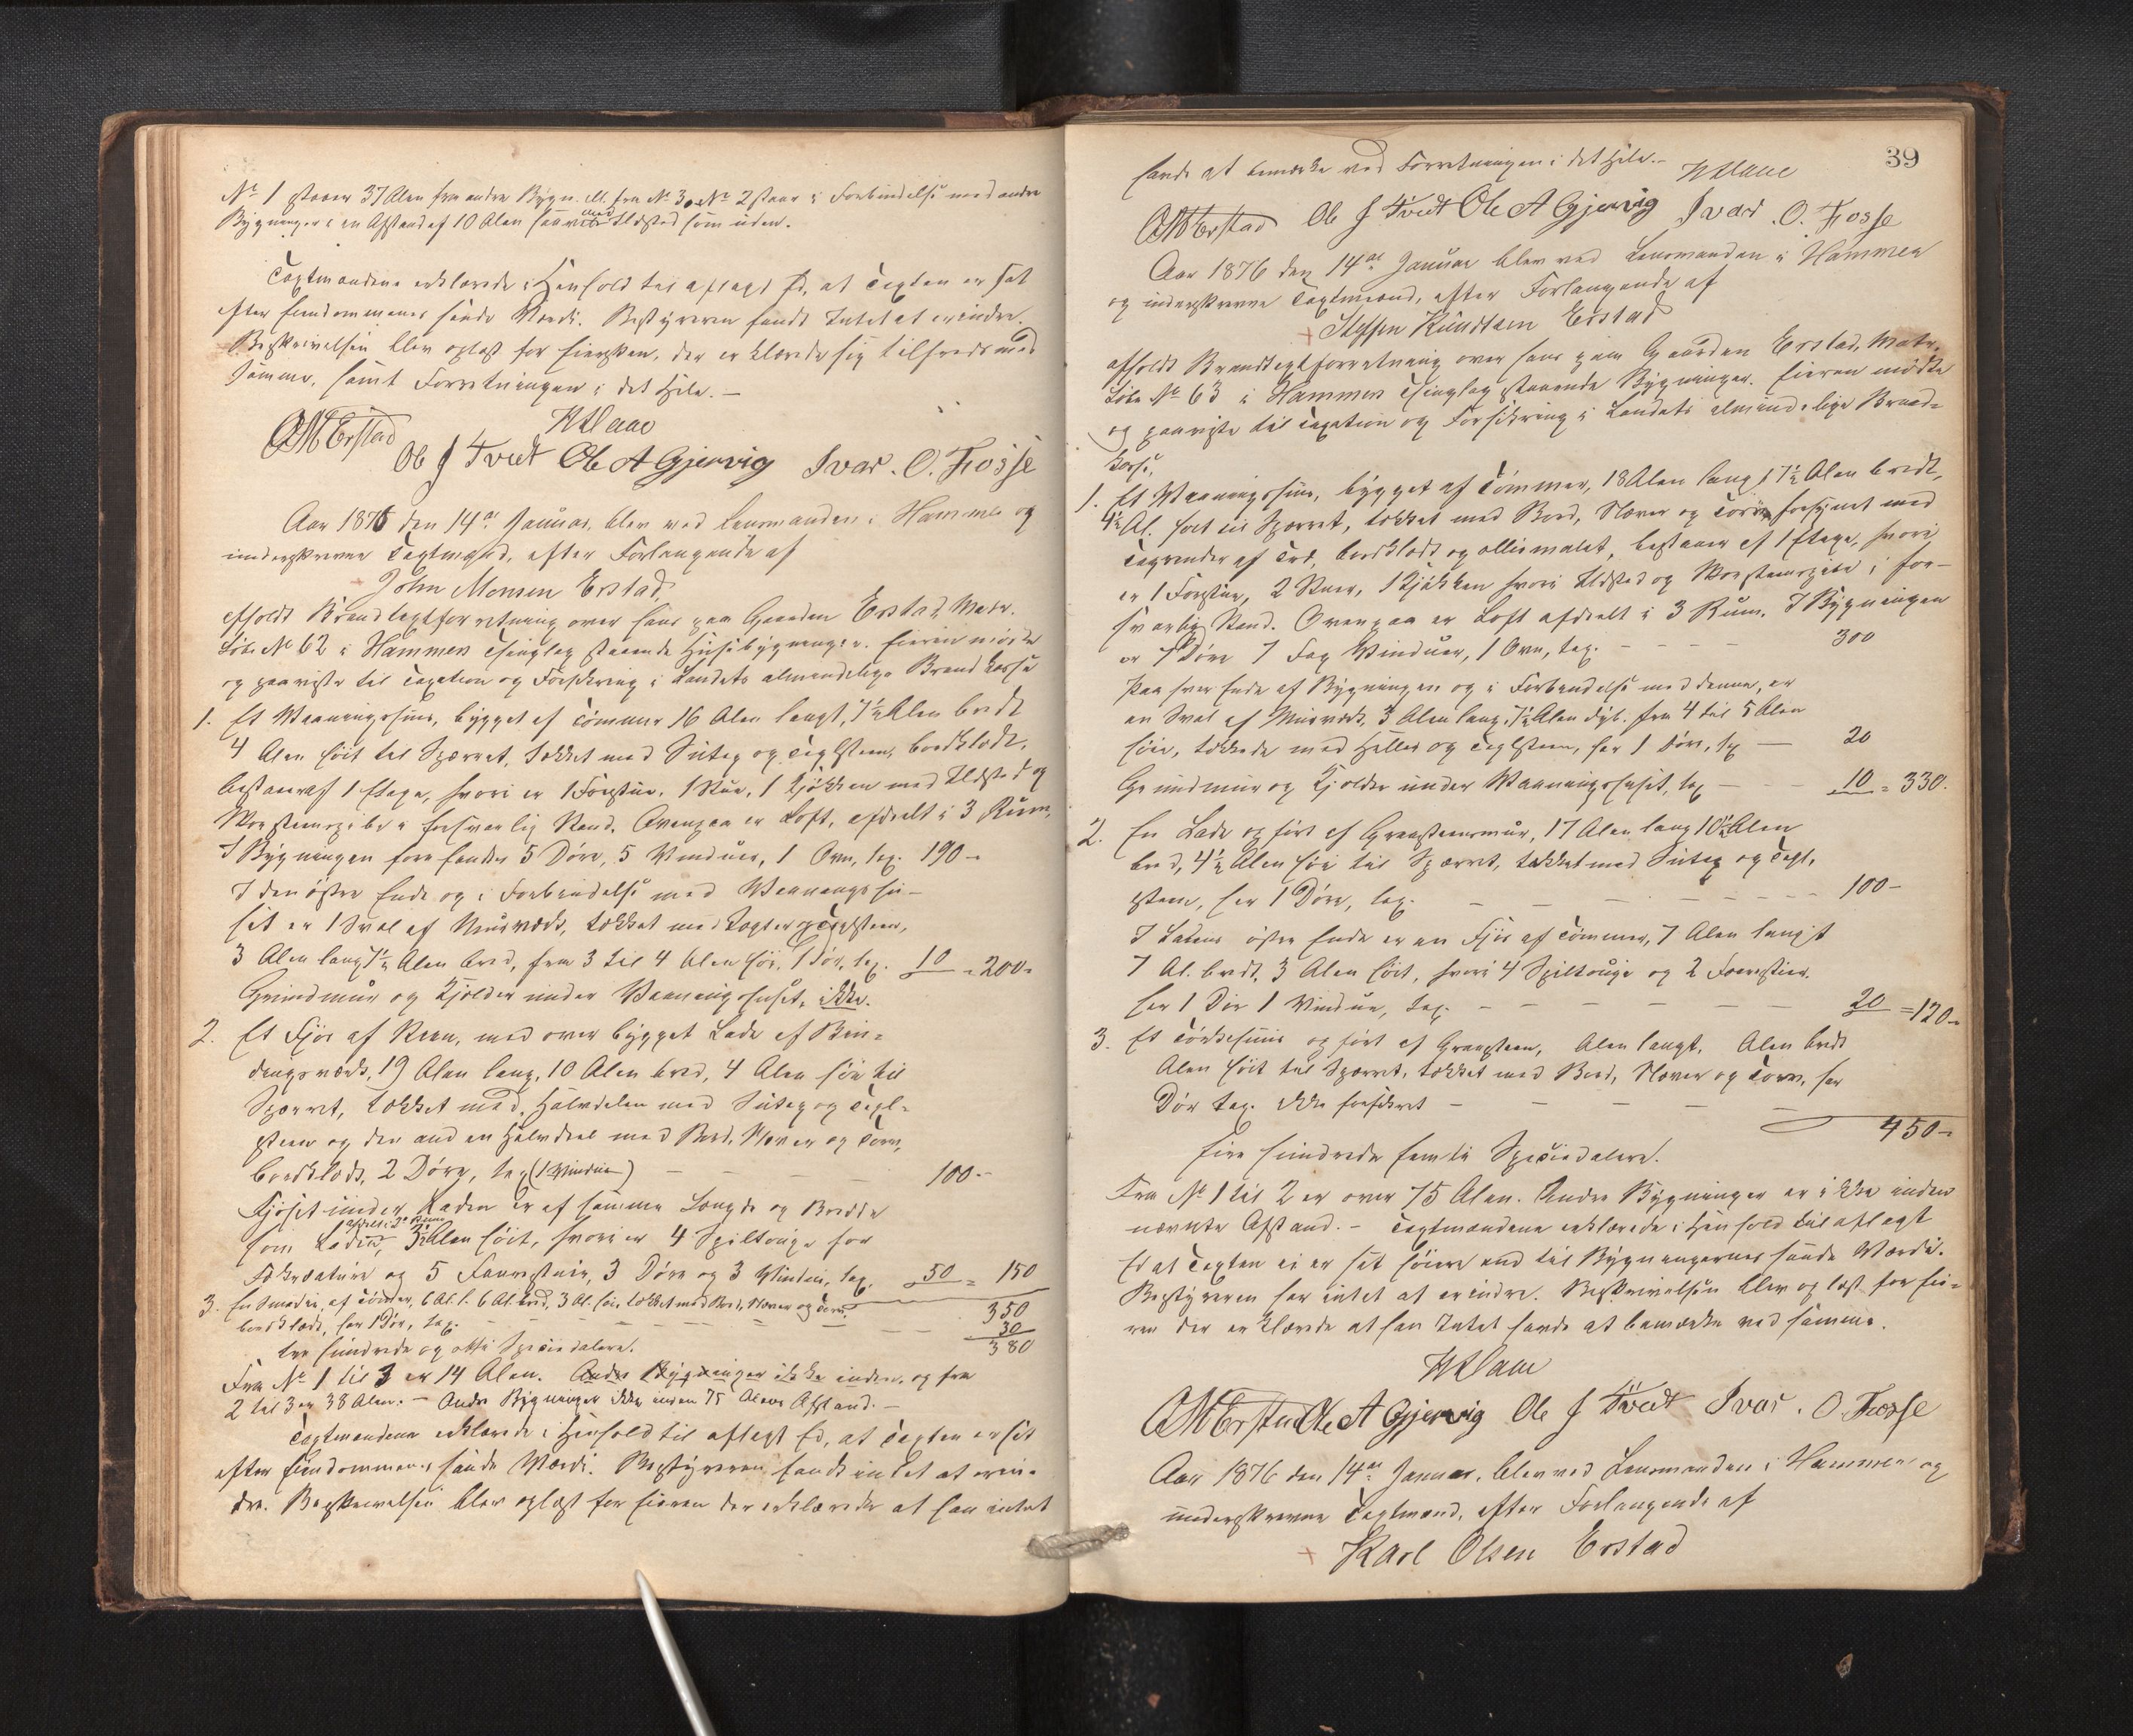 No 1 staar 37 Alen fra andre Bygn. ell. fra No 3. No 2 staar i Forbindelse med andre
Bygninger i en Afstand af 10 Alen saavel med Ildsted som uden.
Taxtmændene erklærede i Henhold til aflagt Ed, at Taxten er sat
efter Eiendommenes sande Værdi. Bestyreren fandt Intet at erindre.
Beskrivelsen blev oplæst for Eiersken, der erklærede sig tilfreds med
samme, samt Forretningen i det Hele. –
Ole J Tveit Ole A Gjervig Ivar. O. Fosse
Aar 1876 den 14de Januar, blev ved Lensmanden i Hammer og
underskrevne Taxtmænd, efter Forlangende af
John Monsen Erstad,
afholdt Brandtaxtforretning over hans paa Gaarden Erstad, Matr.
Løbe No 62 i Hammers Thinglag staaende Husebygninger. Eieren mødte
og paaviste til Taxation og Forsikring i Landets almindelige Brandkasse
1. Et Vaaningshuus, bygget af Tømmer 16 Alen langt, 7½ Alen bredt
4 Alen høit til Sparret, tækket med Sutag og Teglsteen, bordklædt,
bestaar af 1 Etage, hvori er 1 Forstue, 1 Stue, 1 Kjøkken med Ildsted og
Skorsteenspibe i forsvarlig Stand. Ovenpaa er Loft, afdeelt i 3 Rum.
I Bygningen forefindes 5 Døre, 5 Vinduer, 1 Ovn, tax. 190 –
I den østre Ende og i Forbindelse med Vaaningshu-
set er 1 Sval af Muurværk, tækket med og Teglsteen,
3 Alen lang 7½ Alen bred, fra 3 til 4 Alen høi, 1 Dør, tax. 10 = 200 –
Grundmuur og Kjelder under Vaaningshuset, ikke.
2. Et Fjøs af Steen, med over bygget Lade af Bin-
dingsværk, 19 Alen lang, 10 Alen bred, 4 Alen høi til
Sparret, tækket med, Halvdelen med Sutag og Tegl-
steen og den anden Halvdeel med Bord, Næver og Torv,
bordklædt, 2 Døre, tax (1 Vindue) – – – 100 –
Fjøset under Laden er af samme Længde og Bredde
som Laden, afdeelt i 2 Rum 3½ Alen høit, hvori er 4 Spiltouge for
Fækreature og 5 Faarestier, 3 Døre og 3 Vinduer, tax. 50 = 150
350
3. En Smedie, af Tømmer, 6 Al. l. 6 Al. bred, 3 Al. høi, tækket med Bord, Næver og Torv,
bordklædt, har 1 Dør, tax. – – – 30
tre hundrede og otti Speciedalere. 380
Fra No 1 til 3 er 14 Alen. Andre Bygninger ikke inden, og fra
2 til 3 er 38 Alen. – Andre Bygninger ikke inden 75 Alens Afstand. –
Taxtmændene erklærede i Henhold til aflagt Ed, at Taxten er sat
efter Eiendommenes sande Værdi. Bestyreren fandt intet at erin-
dre. Beskrivelsen blev oplæst for Eieren der erklærede at han intet
39
havde at bemærke ved Forretningen i det Hele. –
Ole J Tveit Ole A Gjervig Ivar. O. Fosse
Aar 1876 den 14de Januar blev ved Lensmanden i Hammer
og underskrevne Taxtmænd, efter Forlangende af
Steffen Knudsen Erstad
afholdt Brandtaxtforretning over hans paa Gaarden Erstad, Matr.
Løbe No 63 i Hammers Thinglag staaende Bygninger. Eieren mødte
og paaviste til Taxation og Forsikring i Landets almindelige Brand-
kasse,
1. Et Vaaningshuus, bygget af Tømmer, 18 Alen langt 7½ Alen bredt,
4½ Al. høit til Sparret, tækket med Bord, Næver og Torv, forsynet med
Tagrender af Træ, bordklædt og oliemalet, bestaaer af 1 Etage, hvori
er 1 Forstue, 2 Stuer, 1 Kjøkken hvori Ildsted og Skorsteenspibe i for-
svarlig Stand. Ovenpaa er Loft afdeelt i 3 Rum. I Bygningen
er 7 Døre 7 Fag Vinduer, 1 Ovn, tax. – – – 300
Paa hver Ende af Bygningen og i Forbindelse med denne, er
en Sval af Muurværk, 3 Alen lang, 7½ Alen dyb, fra 4 til 5 Alen
høie, tækkede med Heller og Teglsteen, har 1 Dør, tax – 20
Grundmuur og Kjelder under Vaaningshuset, tax – – 10 = 330.
2. En Lade opført af Graasteensmuur, 17 Alen lang 10½ Alen
bred, 4½ Alen høi til Sparret, tækket med Sutag og Tegl-
steen, har 1 Døre, tax. – – – 100 –
I Ladens østre Ende er en Fjøs af Tømmer, 7 Alen langt
7 Al. bredt, 3 Alen høit, hvori 4 Spiltouge og 2 Faarestier.
har 1 Dør 1 Vindue, tax. – – – 20 = 120 –
3. Et Tørkehuus opført af Graasteen, Alen langt, Alen bredt
Alen høit til Sparret, tækket med Bord, Næver og Torv, har
Dør tax. ikke forsikret – – –
450 –
Fire hundrede femti Speciedalere.
Fra No 1 til 2 er over 75 Alen. Andre Bygninger er ikke inden
nævnte Afstand. – Taxtmændene erklærede i Henhold til aflagt
Ed at Taxten ei er sat høiere end til Bygningernes sande Værdi.
Bestyreren har intet at erindre. Beskrivelsen blev oplæst for Eie-
ren der erklærede at han Intet havde at bemærke ved samme.
Ole A Gjervig Ole J Tveit Ivar. O. Fosse
Aar 1876 den 14de Januar, blev ved Lensmanden i Hammer og
underskrevne Taxtmænd, efter Forlangende af
Karl Olsen Erstad